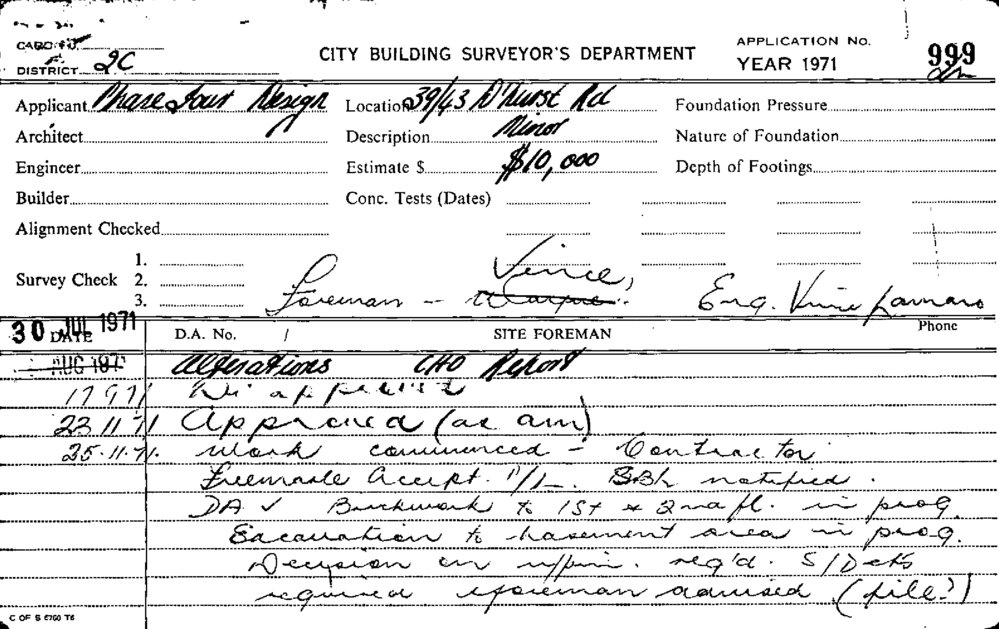 CARD No.
DISTRICT 2C
CITY BUILDING SURVEYOR'S DEPARTMENT
APPLICATION No.
YEAR 1971
999
Applicant Phase Four Design
Location 39/43 D'Hurst Rd
Foundation Pressure
Architect
Description Minor
Nature of Foundation
Engineer
Estimate $ $10,000
Depth of Footings
Builder
Conc. Tests (Dates)
Alignment Checked
Survey Check
1.
2.
3.
Foreman - Vince,
Eng. Vince
30 JUL 1971
DATE
D.A. No. /
SITE FOREMAN
Phone
AUG 197
Alterations CHO Report
17 9 71
23 11 71 Approved (as am)
25.11.71. Work commenced - Contractor
Accept. P/L. BBK notified.
DA ✓ Brickwork to 1st & 2nd fl. in prog.
Excavation to basement area in prog.
Decision on u/pin. req'd. S/Dets
required foreman advised (file?)
C OF S 6760 T6